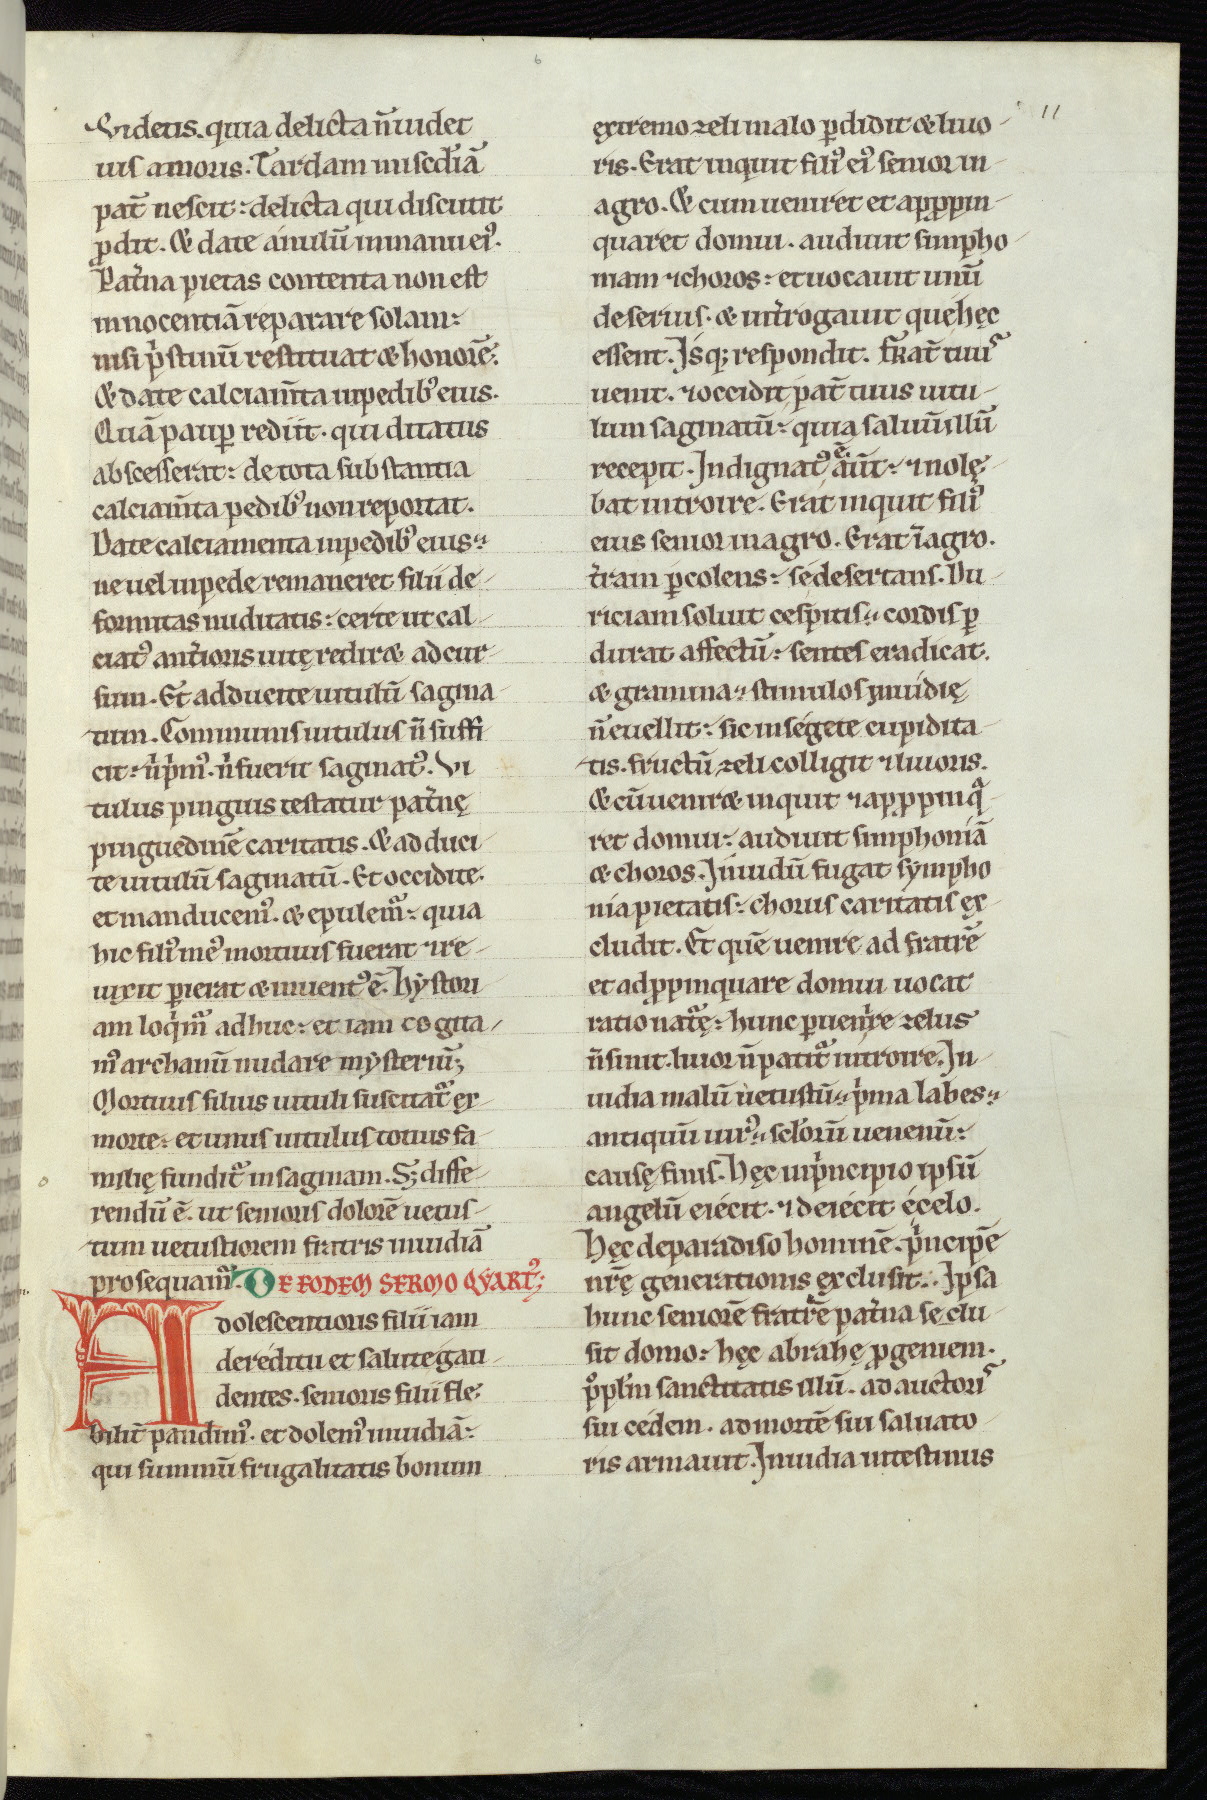 6
11
Videtis. quia delicta ñ uidet
uis amoris. Tardam misedĩã
pat̃ nescit: delicta qui discutit
ꝓdit. & date ánulũ in manu eiꝰ.
Pat̃na pietas contenta non est
innocentiã reparare solam:
nisi p̃stinũ restituat & honorẽ.
& date calciam̃ta in pedibꝰ eius.
Quã paup̱ rediit. qui ditatus
abscesserat: de tota substantia
calciam̃ta pedibꝰ non reportat.
Date calciamenta in pedibꝰ eius:
ne uel in pede remaneret filii de-
formitas nuditatis: certe ut cal-
ciatꝰ ant̃ioris uitę redir& ad cur-
sum. Et adducite uitulũ sagina-
tum. Communis uitulus ñ suffi
cit: ñ p̃mꝰ. ñ fuerit saginatꝰ. Vi
tulus pinguis testatur pat̃nę
pinguedinẽ caritatis. & adduci-
te uitulũ saginatũ. Et occidite.
et manducemꝰ. & epulemꝰ: quia
hic filiꝰ meꝰ mortuus fuerat ⁊ re-
uixit ꝑierat & inuentꝰ ẽ. Hystori
am loq̃m̃ adhuc: et iam cogita-
mꝰ archanũ nudare mysteriũ;
Mortuus filius uituli suscitat̃ ex
morte: et unus uitulus totius fa-
milię fundit̃ in saginam. Sꝫ diffe-
rendũ ẽ. ut senioris dolorẽ uetus-
tum uetustiorem fratris inuidiã
prosequam̃. DE EODEM SERMO QVARTꝰ;
Adolescentioris filii iam
de réditu et salute gau-
dentes. senioris filii fle-
bilit̃ pandimꝰ. et dolemꝰ inuidiã:
qui summũ frugalitatis bonum
extremo zeli malo ꝑdidit & liuo-
ris. Erat inquit filiꝰ eiꝰ senior in
agro. & cum ueniret et apꝓpin-
quaret domui. audiuit simpho-
niam ⁊ choros: et uocauit unũ
de seruis. & int̃rogauit quę hęc
essent. Isqꝫ respondit. Frat̃ tuus
uenit. ⁊ occidit pat̃ tuus uitu-
lum saginatũ: quia saluũ illũ
recepit. Indignatꝰ ẽ aut̃: ⁊ nolę-
bat introire. Erat inquit filiꝰ
eius senior in agro. Erat ĩ agro.
t̃ram ꝑcolens: se desertans. Du-
riciam soluit cespitis: cordis ꝑ
durat affectũ: sentes eradicat.
& gramina: stimulos inuidię
ñ euellit: sic in ségete cupidita-
tis. fructũ zeli colligit ⁊ liuoris.
& cũ uenir& inquit ⁊ apꝓpinq̃
ret domui: audiuit simphoniã
& choros. Inuidũ fugat sympho
nia pietatis: chorus caritatis ex-
cludit. Et quẽ uenire ad fratrẽ
et adꝓpinquare domui uocat
ratio natur̃ę: hunc peruenire zelus
ñ sinit. liuor ñ patit̃ introire. In-
uidia malũ uetustũ: p̃ma labes:
antiquũ uirꝰ: sclorũ uenenũ:
causę finis. Hęc in p̃ncipio ipsũ
angelũ eiécit. ⁊ deiécit é celo.
Hęc de paradiso hominẽ. p̃ncipẽ
nr̃ę generationis exclusit. Ipsa
hunc seniorẽ fratrẽ pat̃na seclu-
sit domo: hęc abrahę ꝓgeniem.
p̊pl̃m sanctitatis illũ. ad auctoris
sui cédem. ad mortẽ sui saluato-
ris armauit. Inuidia intestinus